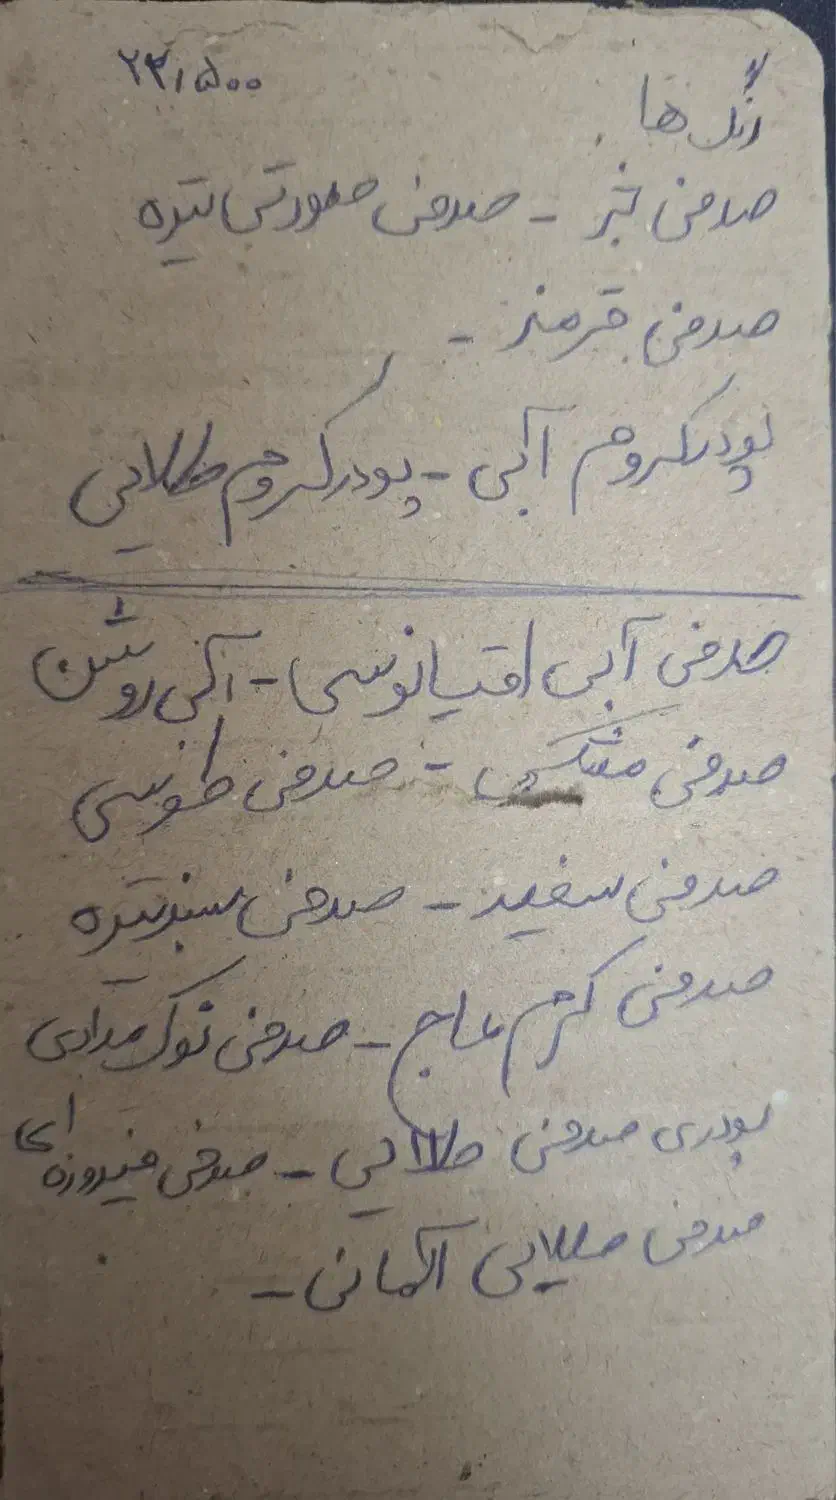 رنگ ها ۲۳/۵۰۰
صدفی - صدفی صورتی تیره
صدفی قرمز -
پودر کروم آبی - پودر کروم طلایی
صدفی آبی اقیانوسی - آبی روشن
صدفی مشکی - صدفی طوسی
صدفی سفید - صدفی سبز تیره
صدفی کرم عاج - صدفی نوک مدادی
پودری صدفی طلایی - صدفی فیروزه ای
صدفی طلایی آلمانی -